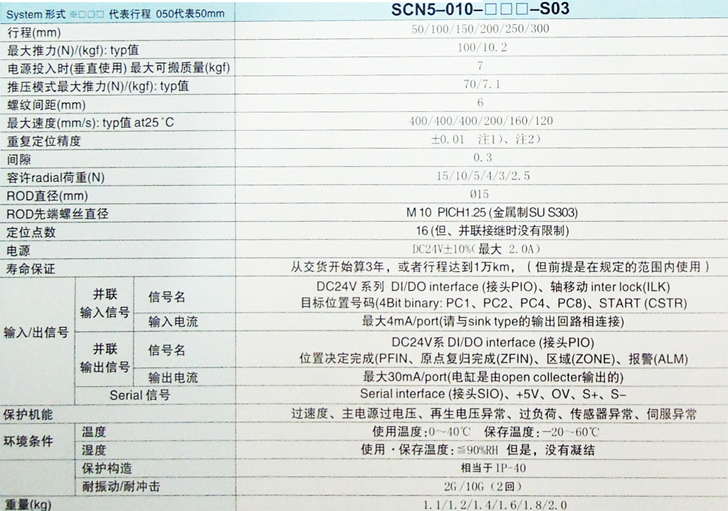 System 形式 ※□□□ 代表行程 050代表50mm SCN5-010-□□□-S03
行程(mm) 50/100/150/200/250/300
最大推力(N)/(kgf): typ值 100/10.2
电源投入时(垂直使用)最大可搬质量(kgf) 7
推压模式最大推力(N)/(kgf): typ值 70/7.1
螺纹间距(mm) 6
最大速度(mm/s): typ值 at25˚C 400/400/400/200/160/120
重复定位精度 ±0.01 注1)、注2)
间隙 0.3
容许radial荷重(N) 15/10/5/4/3/2.5
ROD直径(mm) Ø15
ROD先端螺丝直径 M10 PICH1.25 (金属制SU S303)
定位点数 16 (但、并联接继时没有限制)
电源 DC24V±10%(最大 2.0A)
寿命保证 从交货开始算3年，或者行程达到1万km，（但前提是在规定的范围内使用）
输入/出信号 并联输入信号 信号名 DC24V 系列 DI/DO interface (接头PIO)、轴移动 inter lock(ILK)
目标位置号码(4Bit binary: PC1、PC2、PC4、PC8)、START (CSTR)
输入电流 最大4mA/port(请与sink type的输出回路相连接)
并联输出信号 信号名 DC24V系 DI/DO interface (接头PIO)
位置决定完成(PFIN、原点复归完成(ZFIN)、区域(ZONE)、报警(ALM)
输出电流 最大30mA/port(电缸是由open collecter输出的)
Serial 信号 Serial interface (接头SIO)、+5V、OV、S+、S-
保护机能 过速度、主电源过电压、再生电压异常、过负荷、传感器异常、伺服异常
环境条件 温度 使用温度:0~40℃ 保存温度:-20~60℃
湿度 使用・保存温度:≦90%RH 但是，没有凝结
保护构造 相当于IP-40
耐振动/耐冲击 2G/10G (2回)
重量(kg) 1.1/1.2/1.4/1.6/1.8/2.0